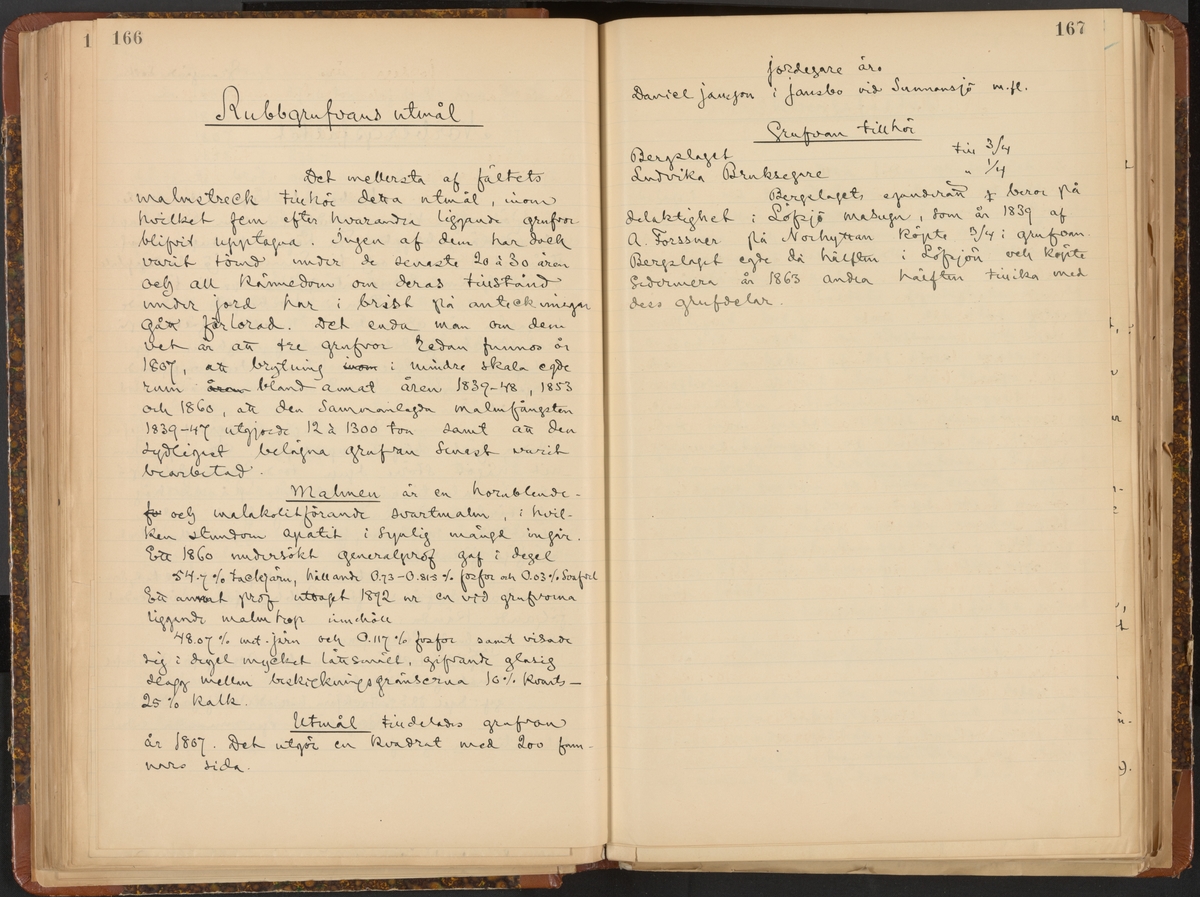 166
Rubbgrufvans utmål
Det mellersta af fältets
malmstreck tillhör detta utmål, inom
hvilket fem efter hvarandra liggande grufvor
blifvit upptagna. Ingen af dem har dock
varit länsd under de senaste 20 à 30 åren
och all kännedom om deras tillstånd
under jord har i brist på anteckningar
gått förlorad. Det enda man om dem
vet är att tre grufvor redan funnos år
1807, att brytning inom i mindre skala egde
rum åren bland annat åren 1839-48, 1853
och 1860, att den sammanlagda malmfångsten
1839-47 utgjorde 12 à 1300 ton samt att den
sydligast belägna grufvan senast varit
bearbetad.
Malmen är en hornblende-
fö och malakolitförande svartmalm, i hvil-
ken stundom apatit i synlig mängd ingår.
Ett 1860 undersökt generalprof gaf i degel
54.7 % tackjärn, hållande 0.73-0.815 % fosfor och 0.03 % svafvel
Ett annat prof uttaget 1892 ur en vid grufvorna
liggande malmhop innehöll
48.07 % met. järn och 0.117 % fosfor samt visade
sig i degel mycket lättsmält, gifvande glasig
slagg mellan beskickningsgränserna 10 % kvarts-
25 % kalk.
Utmål tilldelades grufvan
år 1807. Det utgör en kvadrat med 200 fam-
nars sida.
167
Jordegare äro
Daniel Jansson i Jansbo vid Sunnansjö m.fl.
Grufvan tillhör
Bergslaget till 3/4
Ludvika Bruksegare " 1/4
Bergslagets eganderätt beror på
delaktighet i Löfsjö masugn, som år 1839 af
A. Forssner på Norhyttan köpte 3/4 i grufvan.
Bergslaget egde då hälften i Löfsjön och köpte
sedermera år 1863 andra hälften tillika med
dess grufdelar.